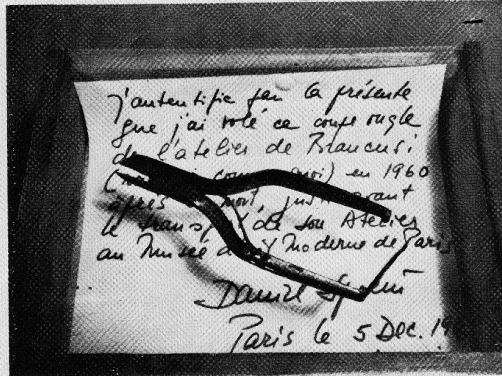 j'autentifie par la présente
que j'ai volé ce coupe ongle
de l'atelier de Brancusi
en 1960
après mort, juste avant
le de son Atelier
au Musée Moderne de Paris
Daniel
Paris le 5 Dec. 19